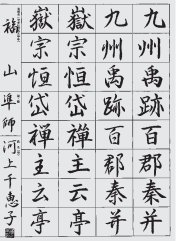 九州禹跡百郡秦并
九州禹跡百郡秦并
嶽宗恒岱禪主云亭
嶽宗恒岱禪主云亭
福山 準師 河上千恵子